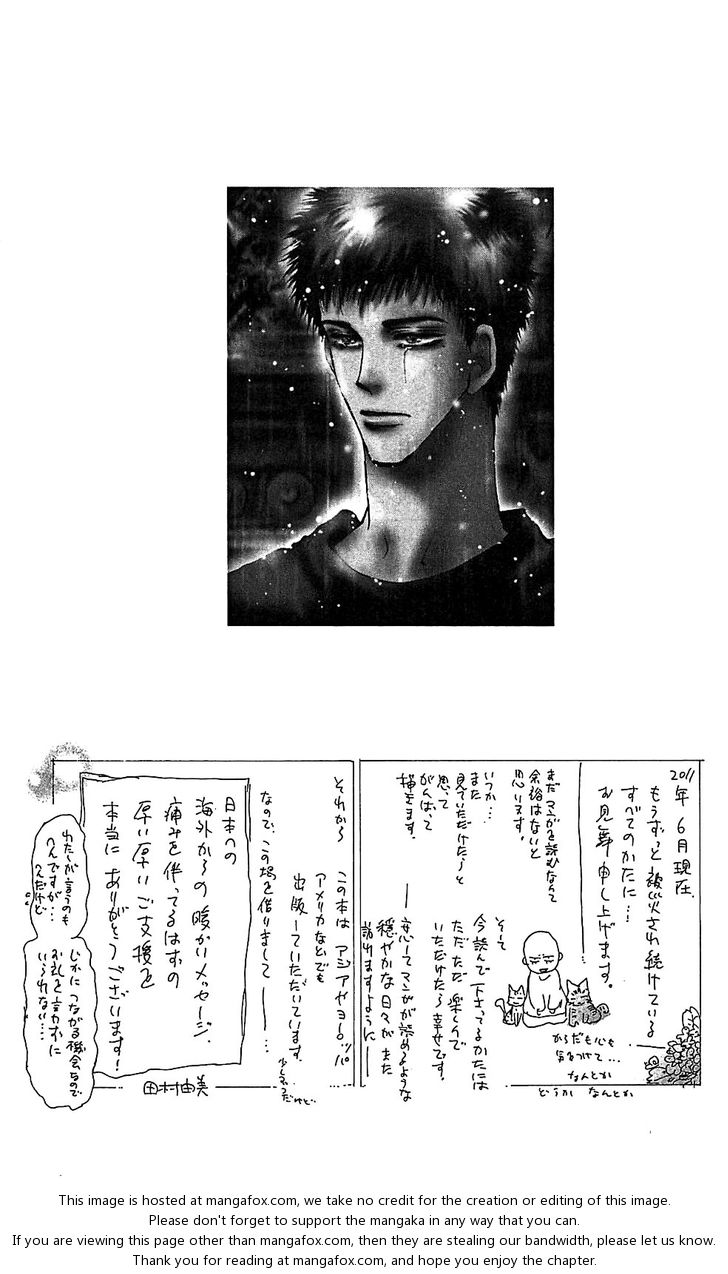 2011年 6月 現在.
もうずっと 被災され続けている
すべてのかたに…
お見舞申し上げます。
まだマンガを読むなんて
余裕はないと
思います。
いつか…
また
見ていただけたら と
思って
がんばって
描きます。
そして
今 読んで下さってるかたには
ただただ 楽しんで
いただけたら 幸せです。
── 安心してマンガが読めるような
穏やかな日々が また
訪れますように ──
からだも心も
気をつけて…
なんとか
どうか なんとか
それから この本は アジアやヨーロッパ
アメリカなどでも
出版していただいています.
少しずつだけど
なので、この場を借りまして ── …
日本への
海外からの 暖かいメッセージ.
痛みを伴ってるはずの
厚い厚い ご支援を
本当に ありがとうございます!
わたしが言うのも
へんですが…
へんだけど
じかに つながる機会なので
お礼を言わずに
いられない…
田村由美
This image is hosted at mangafox.com, we take no credit for the creation or editing of this image.
Please don't forget to support the mangaka in any way that you can.
If you are viewing this page other than mangafox.com, then they are stealing our bandwidth, please let us know.
Thank you for reading at mangafox.com, and hope you enjoy the chapter.